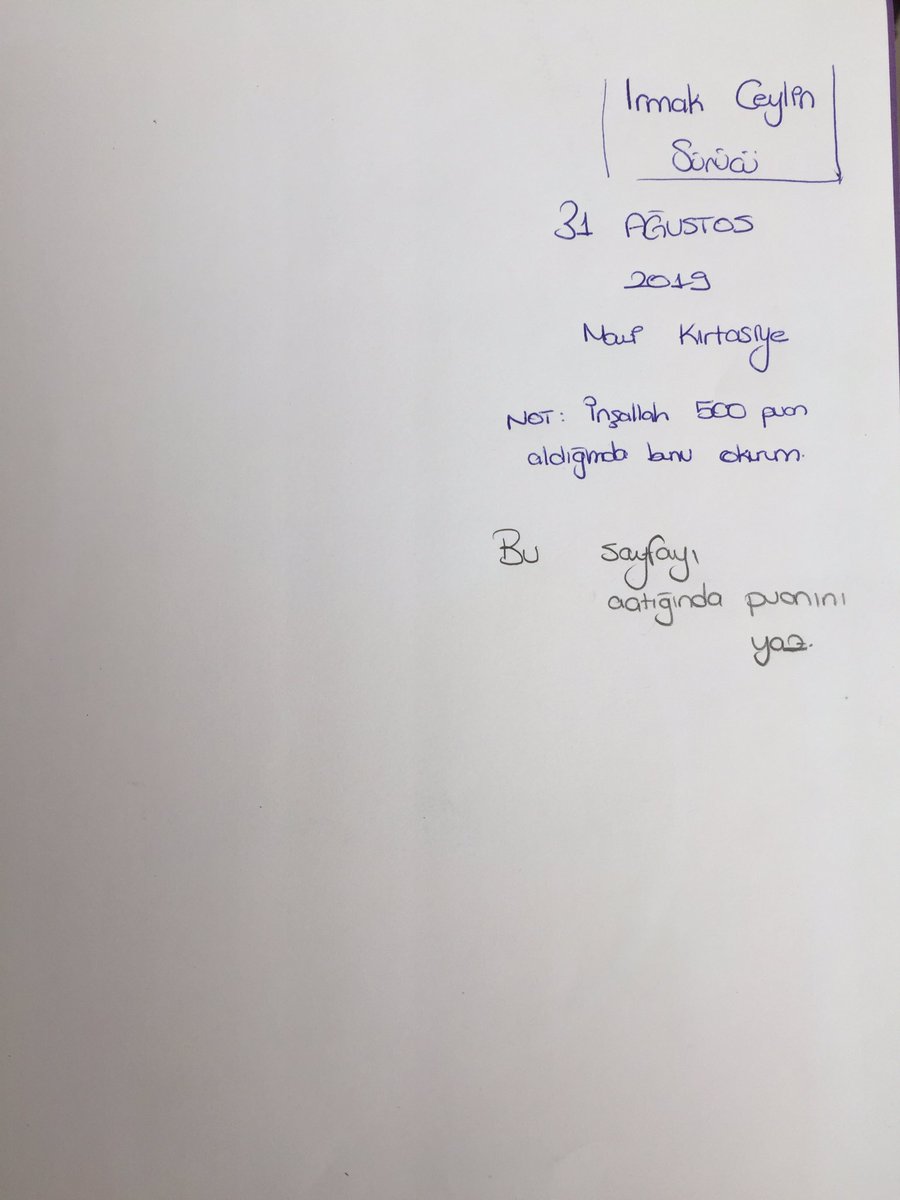 Irmak Ceylin
Sürücü
31 AĞUSTOS
2019
Mavi Kırtasiye
NOT: İnşallah 500 puan
aldığımda bunu okurum.
Bu sayfayı
açtığında puanını
yaz.